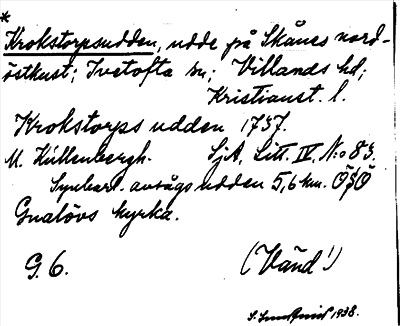 *
Krokstorpsudden, udde på Skånes nord-
östkust; Ivetofta sn; Villands hd;
Kristianst. l.
Krokstorps udden 1737.
M. Küllenbergh. SjA, Litt. IV, N:o 83.
Synbarl. avsågs udden 5,6 km. ÖSÖ
Gualövs kyrka.
G. 6. (Vänd!)
1938.